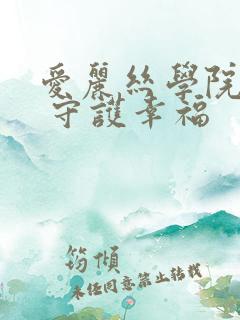 愛麗絲學院
守護幸福
筠傾
未經同意禁止轉載